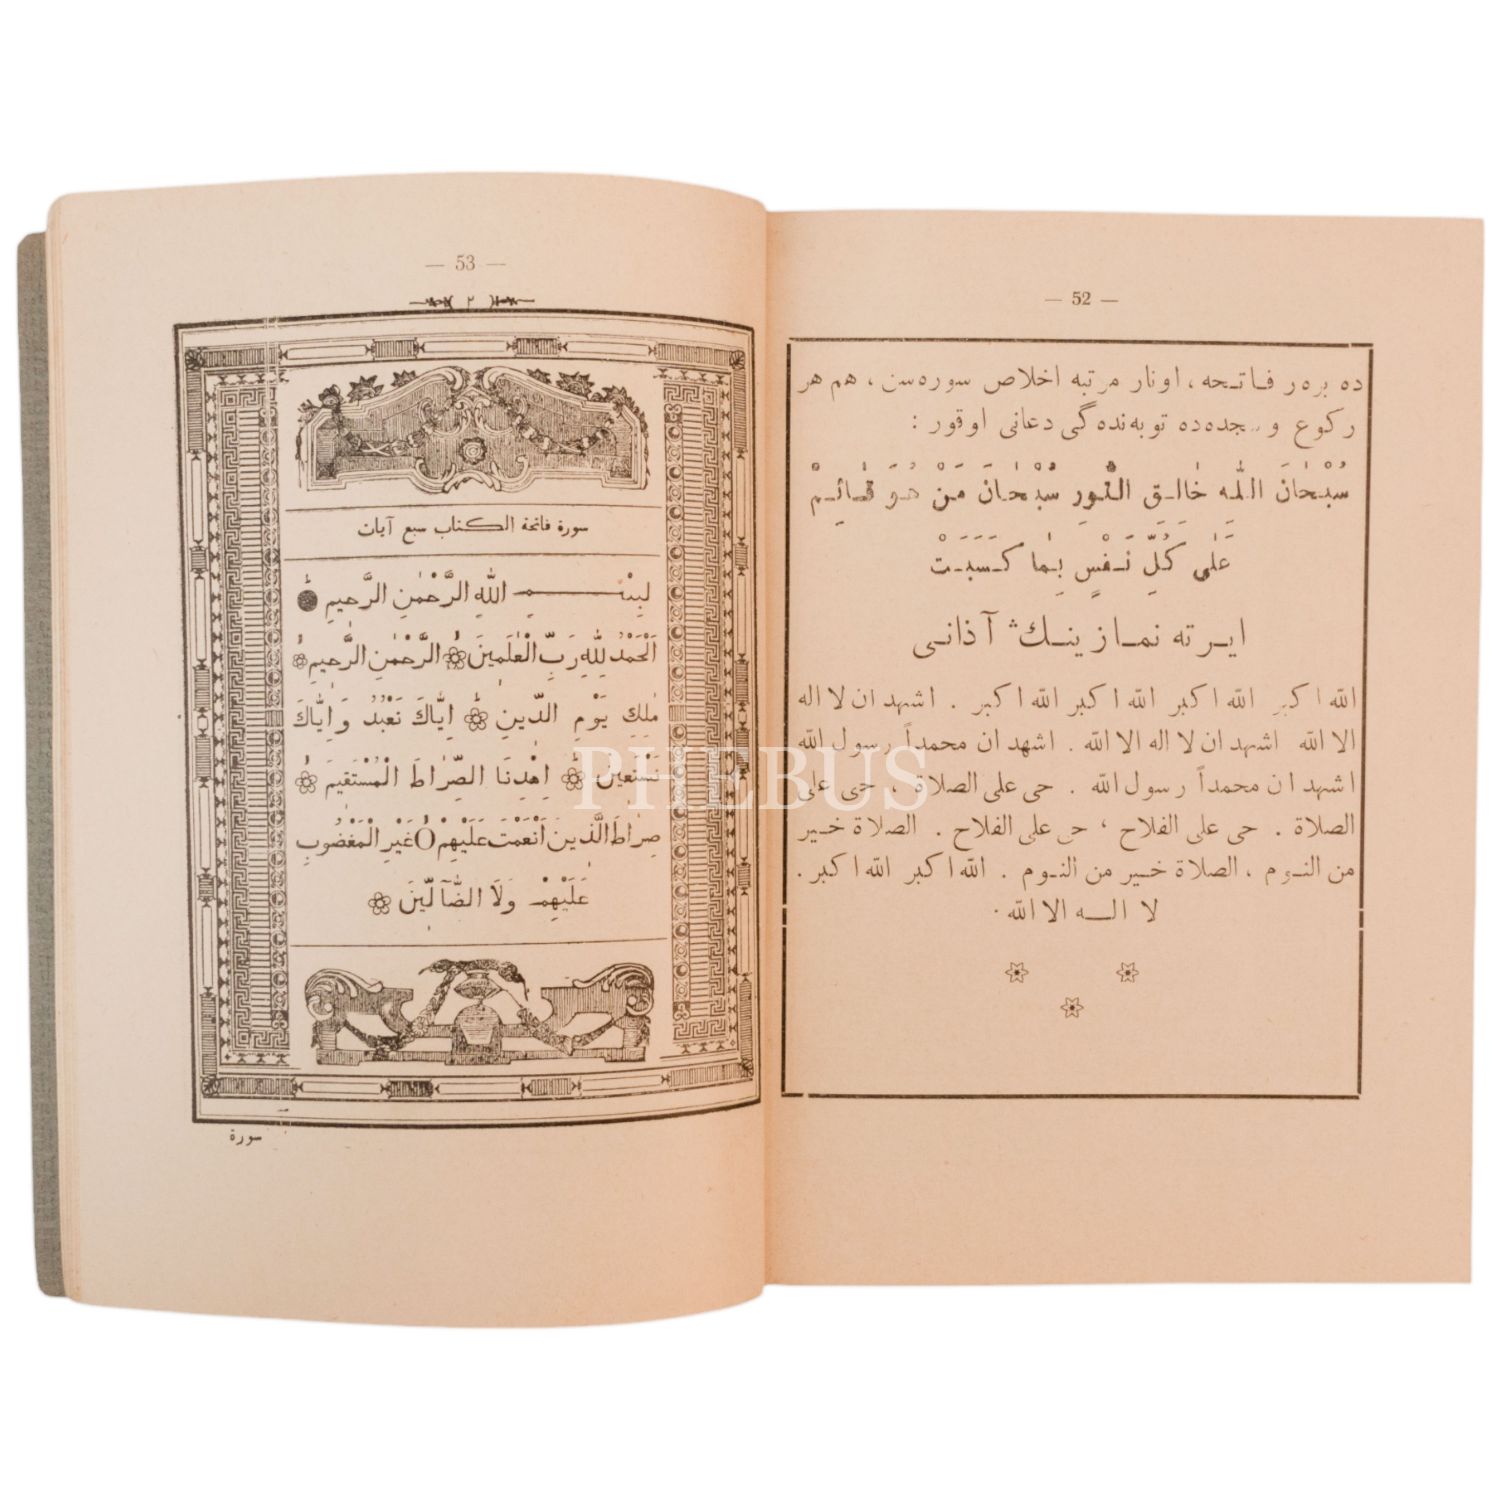 — 52 —
ده بره‌ر فاتحه، اونار مرتبه اخلاص سوره‌سن، هم هر
ركوع و سجده‌ده توبه‌نده‌گی دعانی اوقور :
سُبْحَانَ اللّٰه خَالِق النُّورِ سُبْحَانَ مَنْ هُوَ قَائِمْ
عَلٰى كُلِّ نَفْسٍ بِمَا كَسَبَتْ
ايرته نمازينڭ آذانى
الله اكبر الله اكبر الله اكبر الله اكبر . اشهد ان لا اله
الا الله اشهد ان لا اله الا الله . اشهد ان محمداً رسول الله
اشهد ان محمداً رسول الله . حى على الصلاة ، حى على
الصلاة . حى على الفلاح ، حى على الفلاح . الصلاة خير
من النوم ، الصلاة خير من النوم . الله اكبر الله اكبر .
لا اله الا الله .
— 53 —
( ٢ )
سورة فاتحة الكتاب سبع آيات
بِسْمِ اللهِ الرَّحْمٰنِ الرَّحِيمِ
اَلْحَمْدُ لِلّٰهِ رَبِّ الْعَالَمِينَ الرَّحْمٰنِ الرَّحِيمِ
مٰلِكِ يَوْمِ الدِّينِ اِيَّاكَ نَعْبُدُ وَاِيَّاكَ
نَسْتَعِينُ اِهْدِنَا الصِّرَاطَ الْمُسْتَقِيمَ
صِرَاطَ الَّذِينَ اَنْعَمْتَ عَلَيْهِمْ غَيْرِ الْمَغْضُوبِ
عَلَيْهِمْ وَلَا الضَّآلِّينَ
سورة
PHEBUS